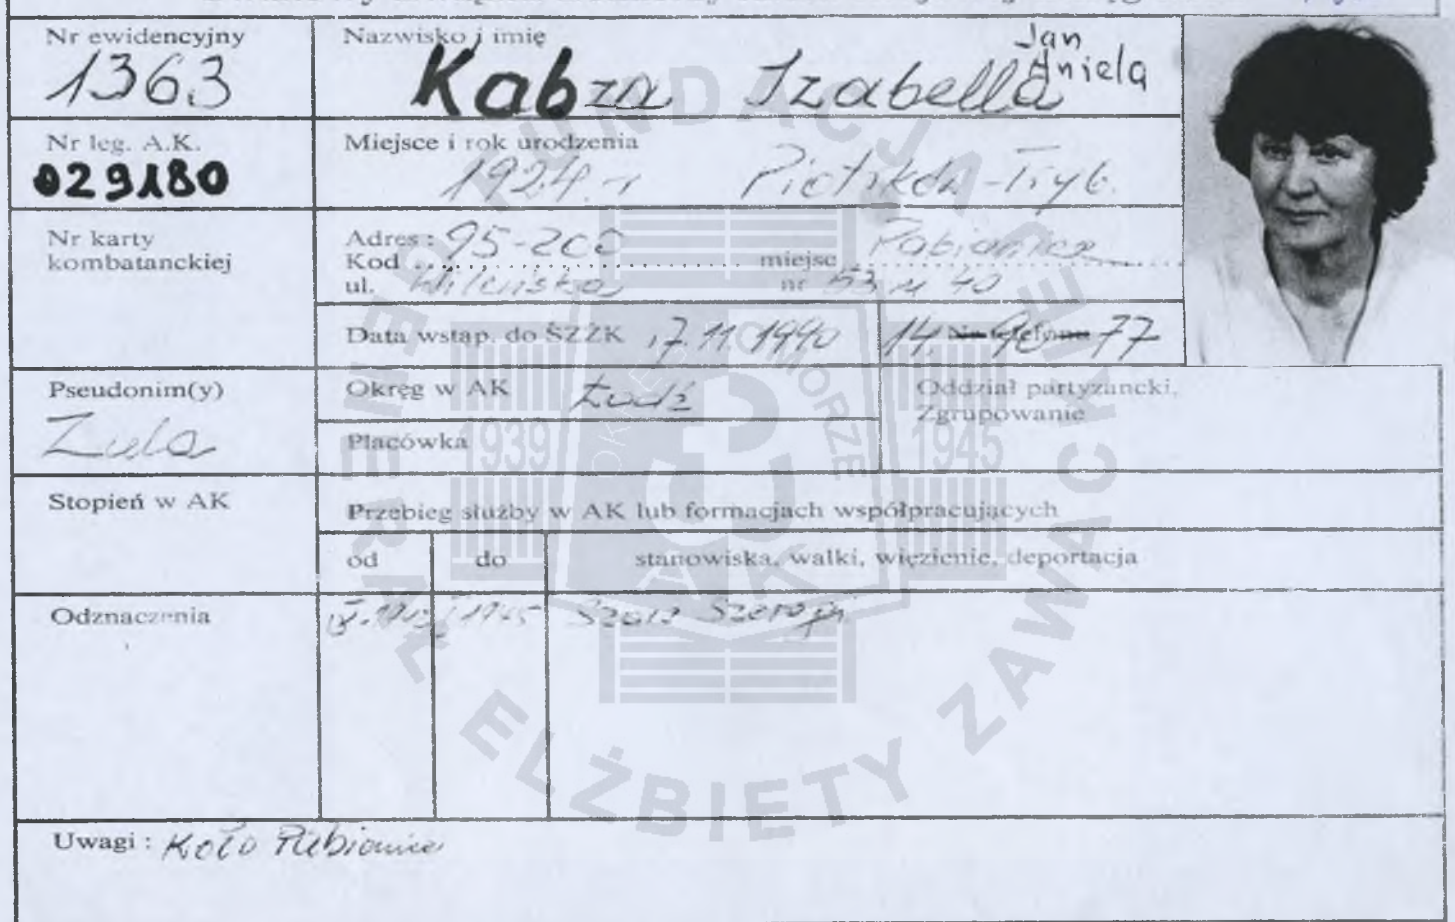 Nr ewidencyjny
1363
Nazwisko i imię
Jan
Aniela
Kabza Izabella
Nr leg. A.K.
029180
Miejsce i rok urodzenia
1924 r Piotrków-Tryb.
Nr karty
kombatanckiej
Adres: 95-200
Kod miejsc Pabianice
ul. Wileńska nr 53 m 40
Data wstąp. do ŚZŻK 17.11.1990
14 90 77
Pseudonim(y)
Zula
Okręg w AK Łódź
Placówka
Oddział partyzancki,
Zgrupowanie
Stopień w AK
Przebieg służby w AK lub formacjach współpracujących
od do stanowiska, walki, więzienie, deportacja
Odznaczenia
1945 Szare Szeregi
Uwagi: Koło Pabianice
FUNDACJA GENERAŁ ELŻBIETY ZAWACKIEJ
POMORZE
1939
1945
AK